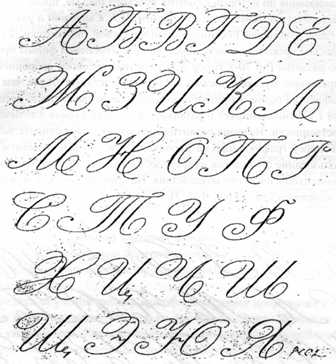 А Б В Г Д Е
Ж З И К Л
М Н О П Р
С Т У Ф
Х Ц Ч Ш
Щ Э Ю Я